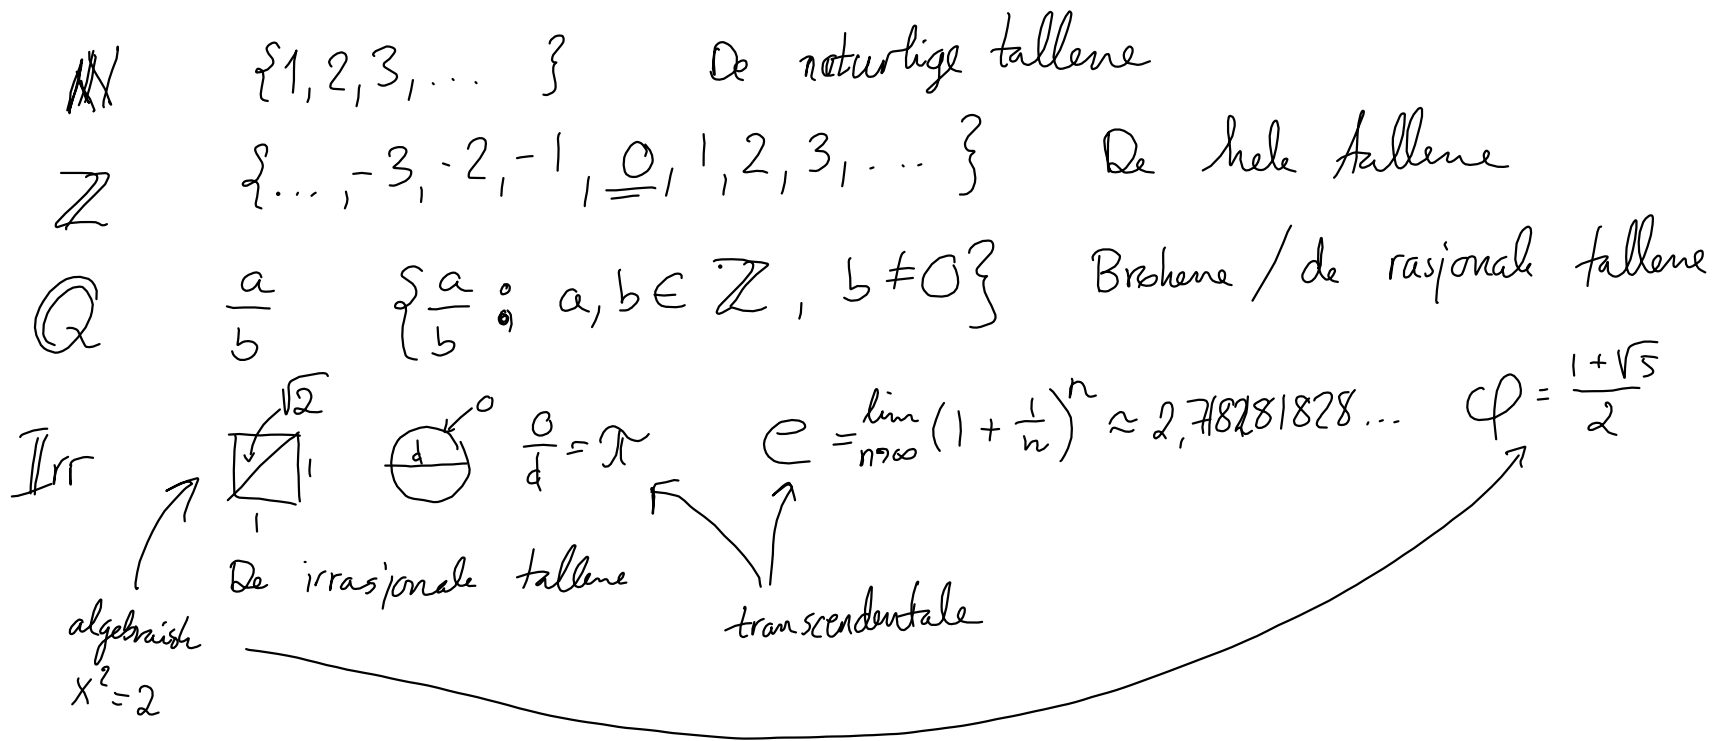 ℕ {1, 2, 3, ... } De naturlige tallene
ℤ {..., -3, -2, -1, 0, 1, 2, 3, ... } De hele tallene
ℚ a/b {a/b ; a, b ∈ ℤ, b ≠ 0} Brøkene / de rasjonale tallene
𝕀rr √2 1 1 d O O/d = π e = lim n→∞ (1 + 1/n)^n ≈ 2,718281828... φ = (1+√5)/2
De irrasjonale tallene
algebraisk transcendentale
x² = 2